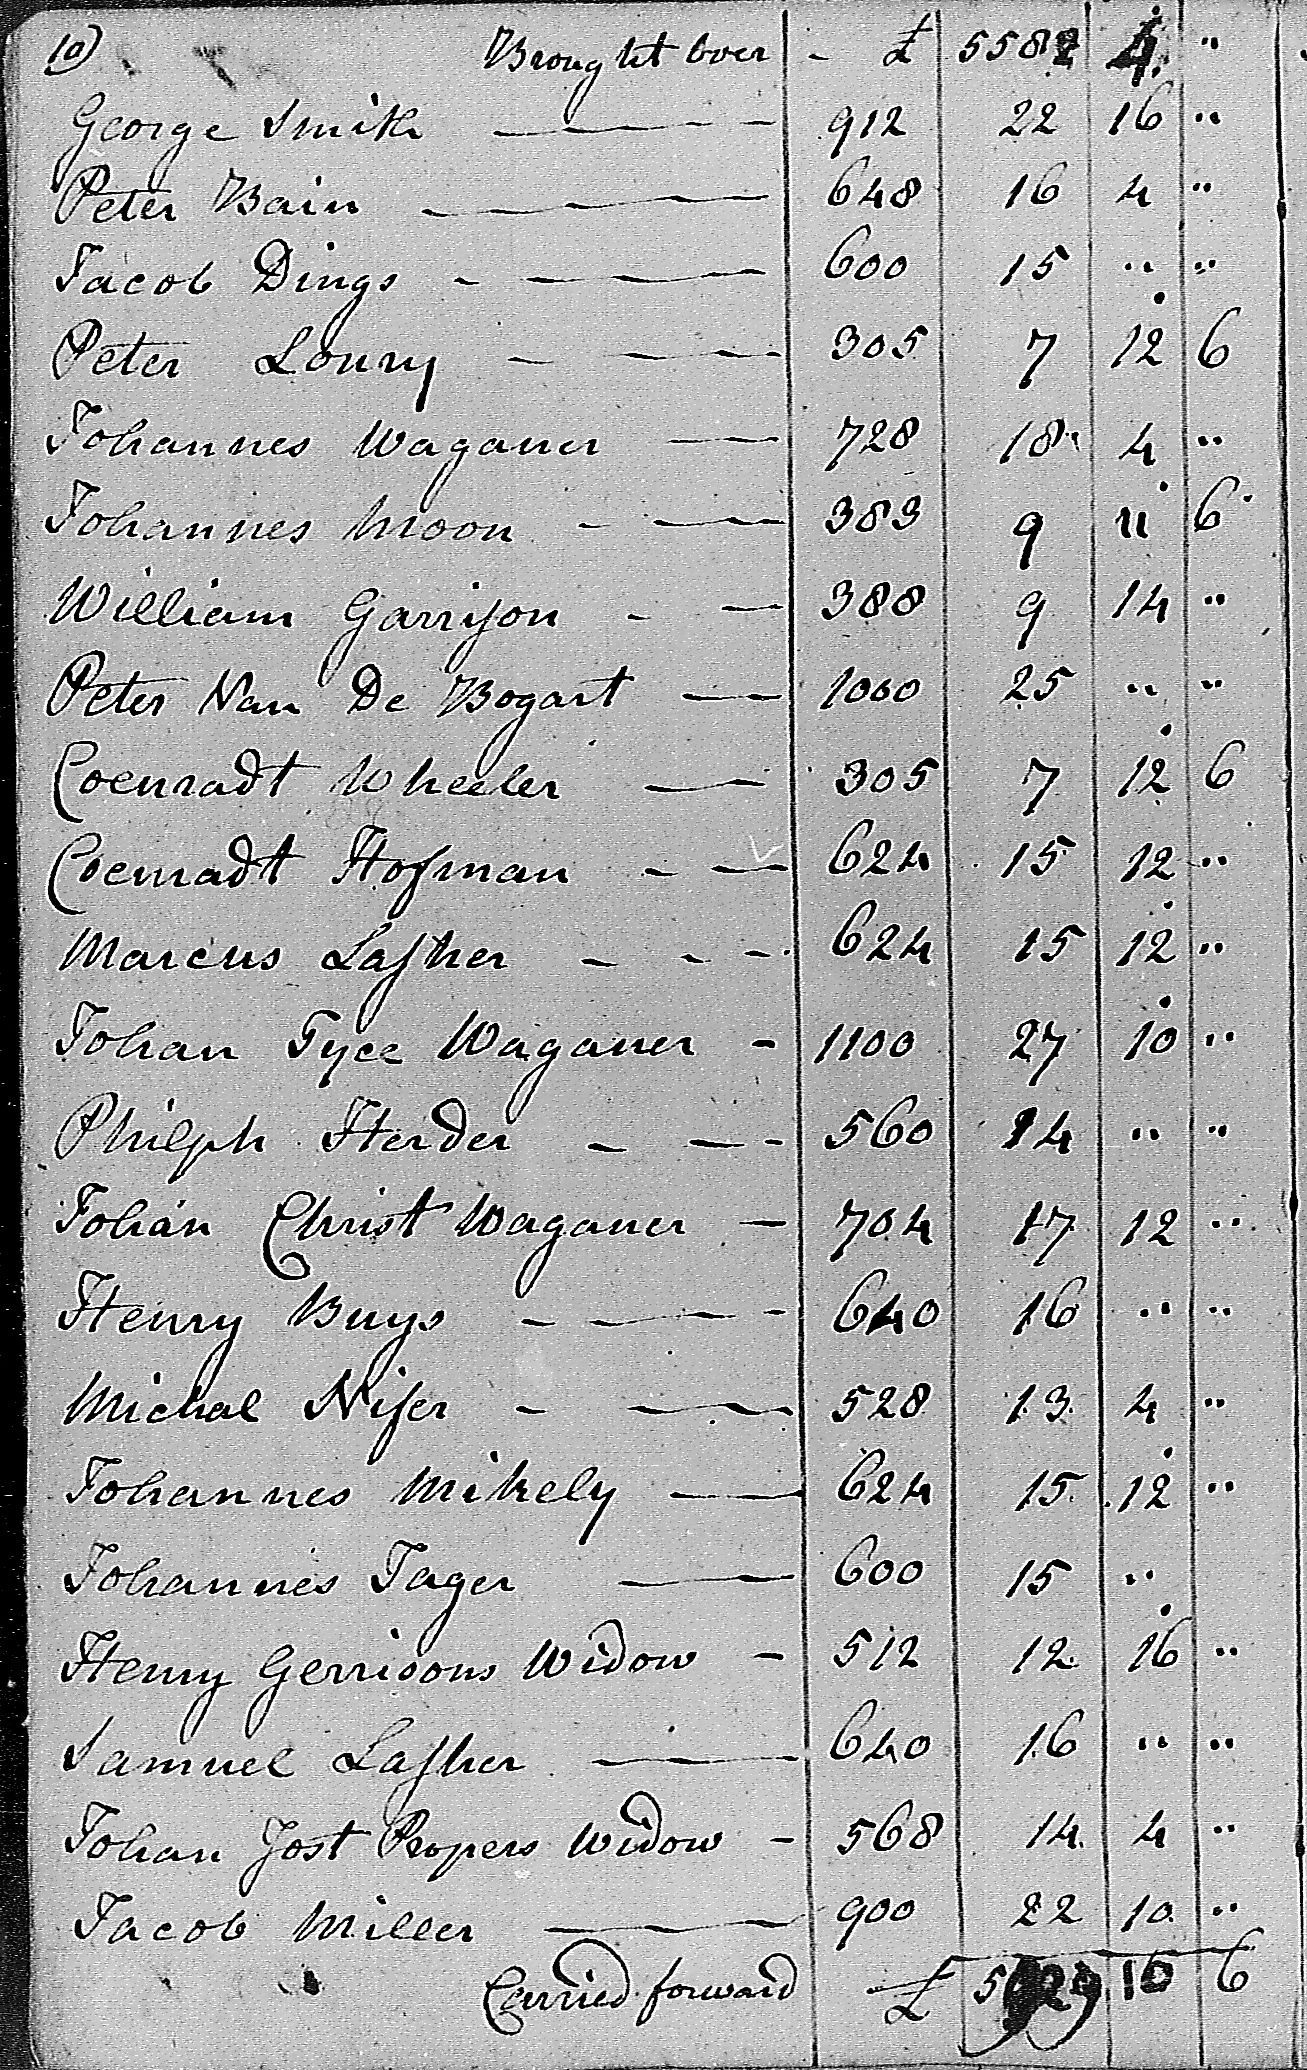 10) Brought over - £ 5582 4 "
George Smith 912 22 16 "
Peter Bain 648 16 4 "
Jacob Dings 600 15 " "
Peter Loury 305 7 12 6
Johannes Waganer 728 18 4 "
Johannes Moon 383 9 11 6
William Garrison 388 9 14 "
Peter Van De Bogart 1000 25 " "
Coenradt Wheeler 305 7 12 6
Coenradt Hofman 624 15 12 "
Marcus Lasher 624 15 12 "
Johan Tyce Waganer 1100 27 10 "
Philiph Herder 560 14 " "
Johan Christ Waganer 704 17 12 "
Henry Buys 640 16 " "
Michal Niser 528 13 4 "
Johannes Mikely 624 15 12 "
Johannes Jager 600 15 "
Henry Gerrisons Widow 512 12 16 "
Samuel Lasher 640 16 " "
Johan Jost Propers Widow 568 14 4 "
Jacob Miller 900 22 10 "
Carried forward £ 10 6